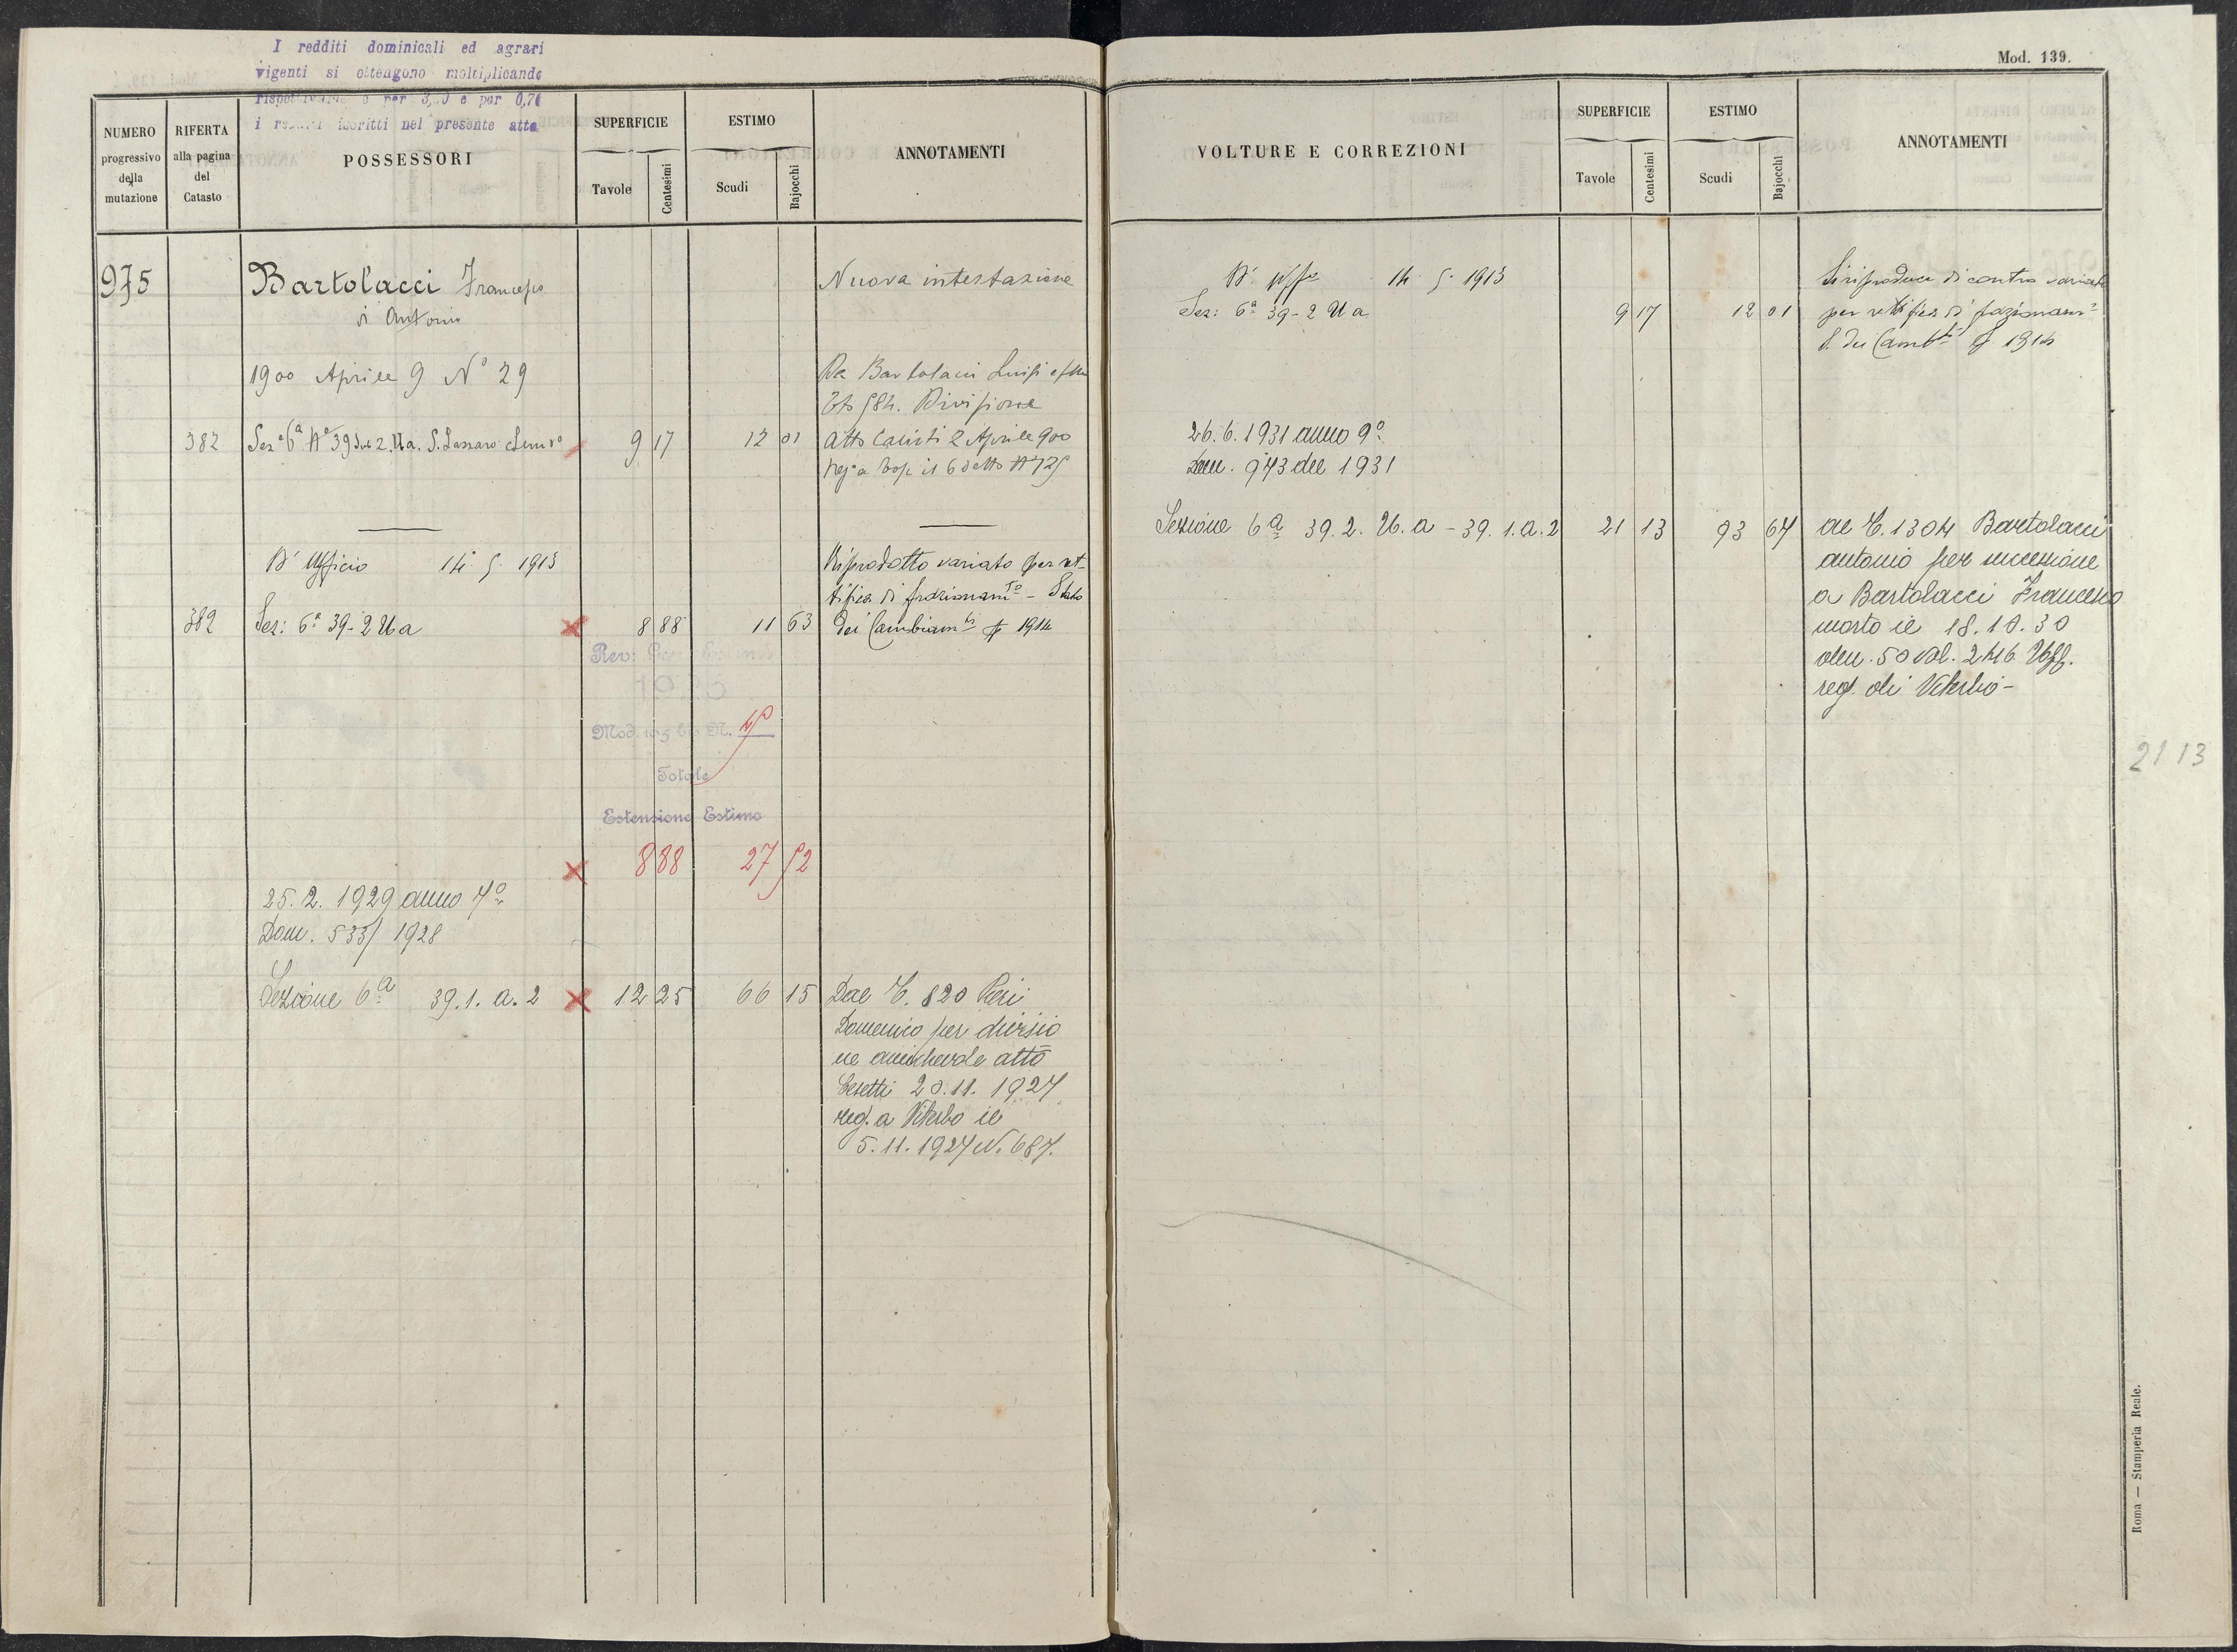 I redditi dominicali ed agrari
vigenti si ottengono moltiplicando
e per 0,70
i iscritti nel presente atto
NUMERO progressivo della mutazione
RIFERTA alla pagina del Catasto
POSSESSORI
SUPERFICIE
Tavole
Centesimi
ESTIMO
Scudi
Bajocchi
ANNOTAMENTI
975
Bartolacci Francesco
di Antonio
Nuova intestazione
1900 Aprile 9 N° 29
Da Bartolacci Luigi
Divisione
382 Sez e 6ª N° 39 Sub 2. Ua. S. Lazzaro 9 17 12 01
Atto 2 Aprile 900
il 6 detto N° 725
D' Ufficio 14. 5. 1915
Riprodotto variato per ret-
tifica di frazionamto - Stato
382 Sez: 6ª 39-2 Ua 8 88 11 63 dei Cambiamti 1914
Rev:
Mod.
Totale
Estensione Estimo
8 88 27 52
25. 2. 1929 anno 7°
Dom. 533/ 1928
Sezione 6ª 39. 1. a. 2 12 25 66 15 Dal C. 820 Pieri
Domenico per divisio
ne amichevole atto
20. 11. 1927
reg. a Viterbo il
5. 11. 1927 N. 687.
Mod. 139.
VOLTURE E CORREZIONI
SUPERFICIE
Tavole
Centesimi
ESTIMO
Scudi
Bajocchi
ANNOTAMENTI
D' uffo 14. 5. 1915
Sez: 6ª 39-2 Ua 9 17 12 01
Si riproduce di contro variato
per rettifica di frazionamto
S. dei Cambti 1914
26. 6. 1931 anno 9°
Dom. 973 del 1931
Sezione 6ª 39. 2. U. a - 39. 1. a. 2 21 13 93 67 al C. 1304 Bartolacci
Antonio per successione
a Bartolacci Francesco
morto il 18. 10. 30
den. 50 vol. 246 Uff.
reg. di Viterbo -
21 13
Roma — Stamperia Reale.